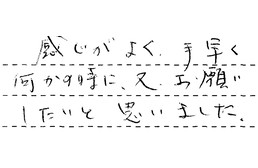 感じがよく、手早く
何かの時に、又、お願い
したいと思いました。